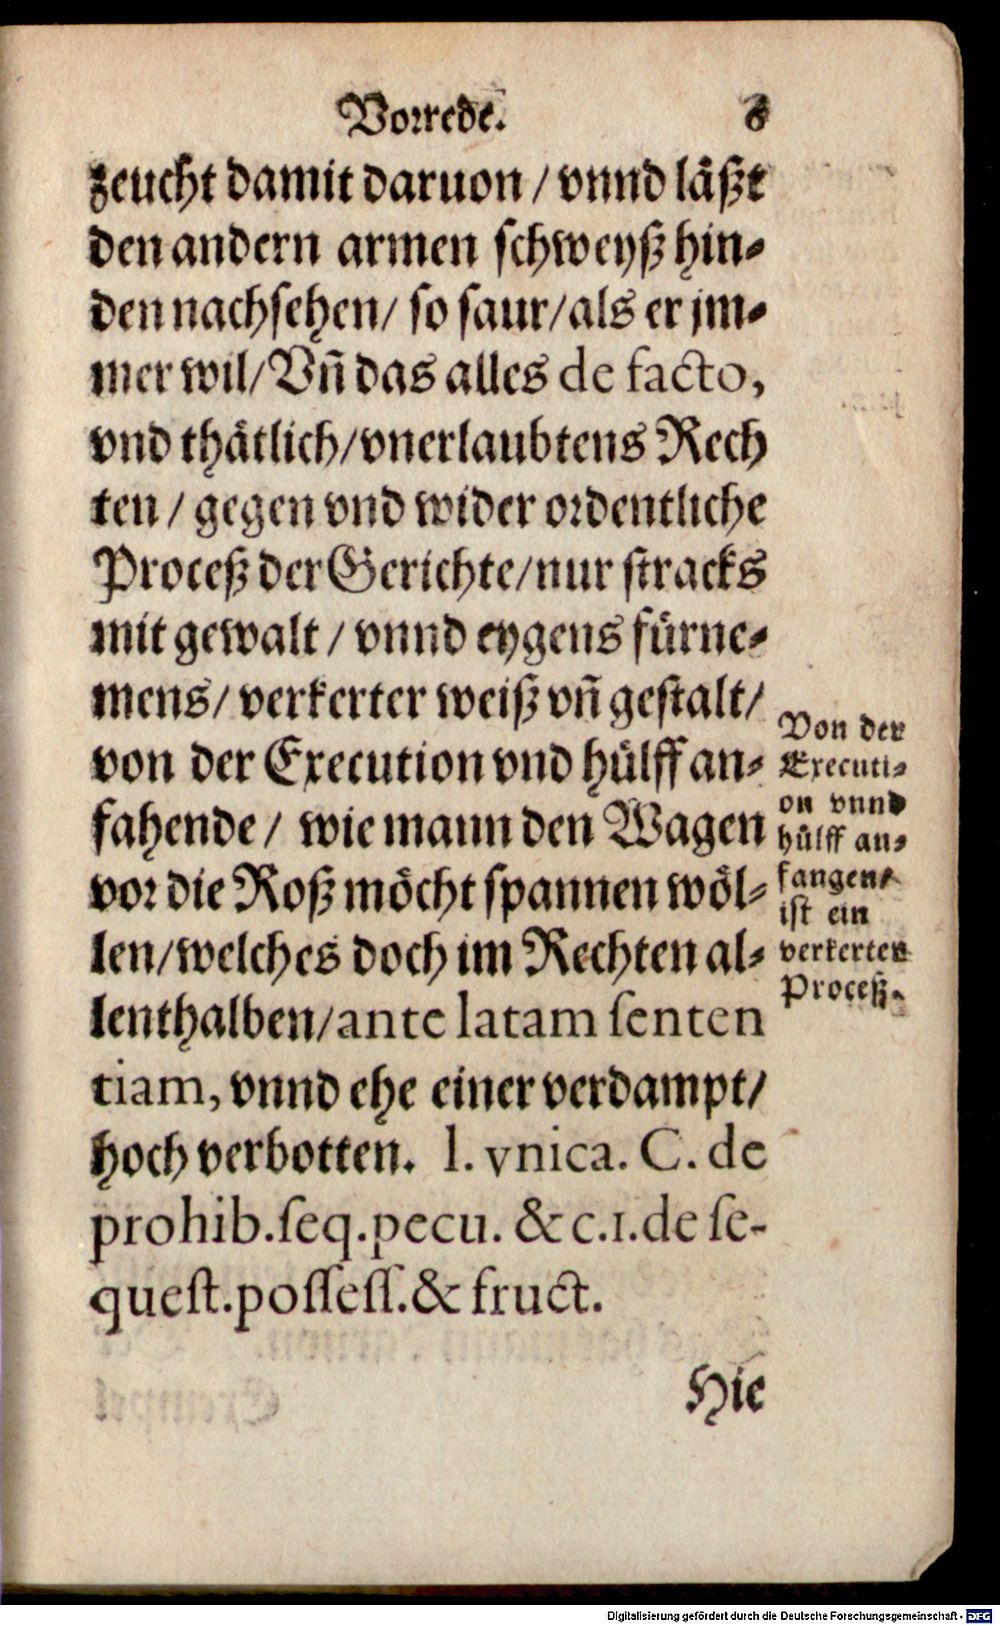 Vorrede. 8
zeucht damit daruon / vnnd läßt
den andern armen schweyß hin-
den nachsehen/ so saur/als er jm-
mer wil/Vñ das alles de facto,
vnd thätlich/vnerlaubtens Rech
ten / gegen vnd wider ordentliche
Proceß der Gerichte/nur stracks
mit gewalt / vnnd eygens fürne-
mens/ verkerter weiß vñ gestalt/
von der Execution vnd hülff an-
fahende / wie mann den Wagen
vor die Roß möcht spannen wöl-
len/welches doch im Rechten al-
lenthalben/ante latam senten
tiam, vnnd ehe einer verdampt/
hoch verbotten. l. vnica. C. de
prohib.seq.pecu. & c.1.de se-
quest.possess.& fruct.
Von der
Executi-
on vnnd
hülff an-
fangen,
ist ein
verkerter
Proceß.
Hie
Digitalisierung gefördert durch die Deutsche Forschungsgemeinschaft - DFG